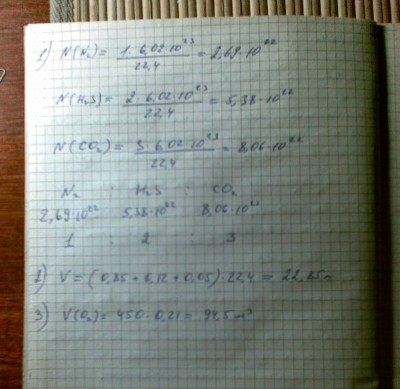 1) N(N₂) = 1·6,02·10²³ / 22,4 = 2,69·10²²
N(H₂S) = 2·6,02·10²³ / 22,4 = 5,38·10²²
N(CO₂) = 3·6,02·10²³ / 22,4 = 8,06·10²²
N₂ : H₂S : CO₂
2,69·10²² 5,38·10²² 8,06·10²²
1 : 2 : 3
2) V = (0,85 + 0,12 + 0,05)·22,4 = 22,85л
3) V(O₂) = 450·0,21 = 94,5 м³